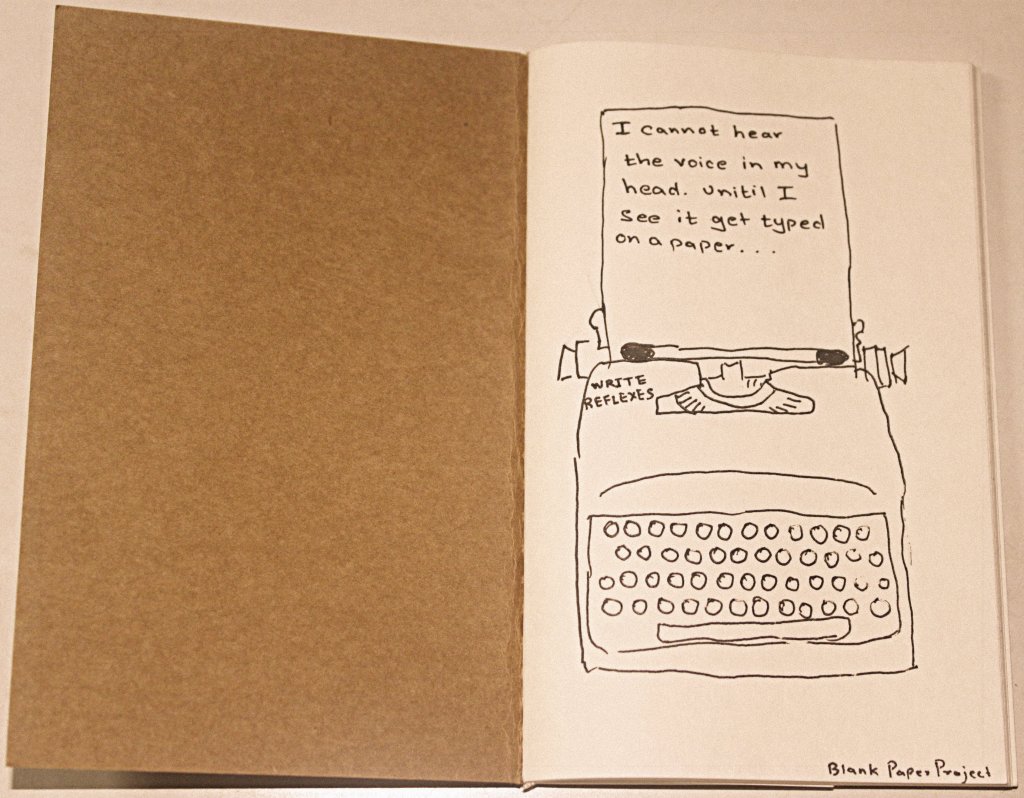 I cannot hear
the voice in my
head. unitil I
see it get typed
on a paper...
WRITE
REFLEXES
Blank Paper Project